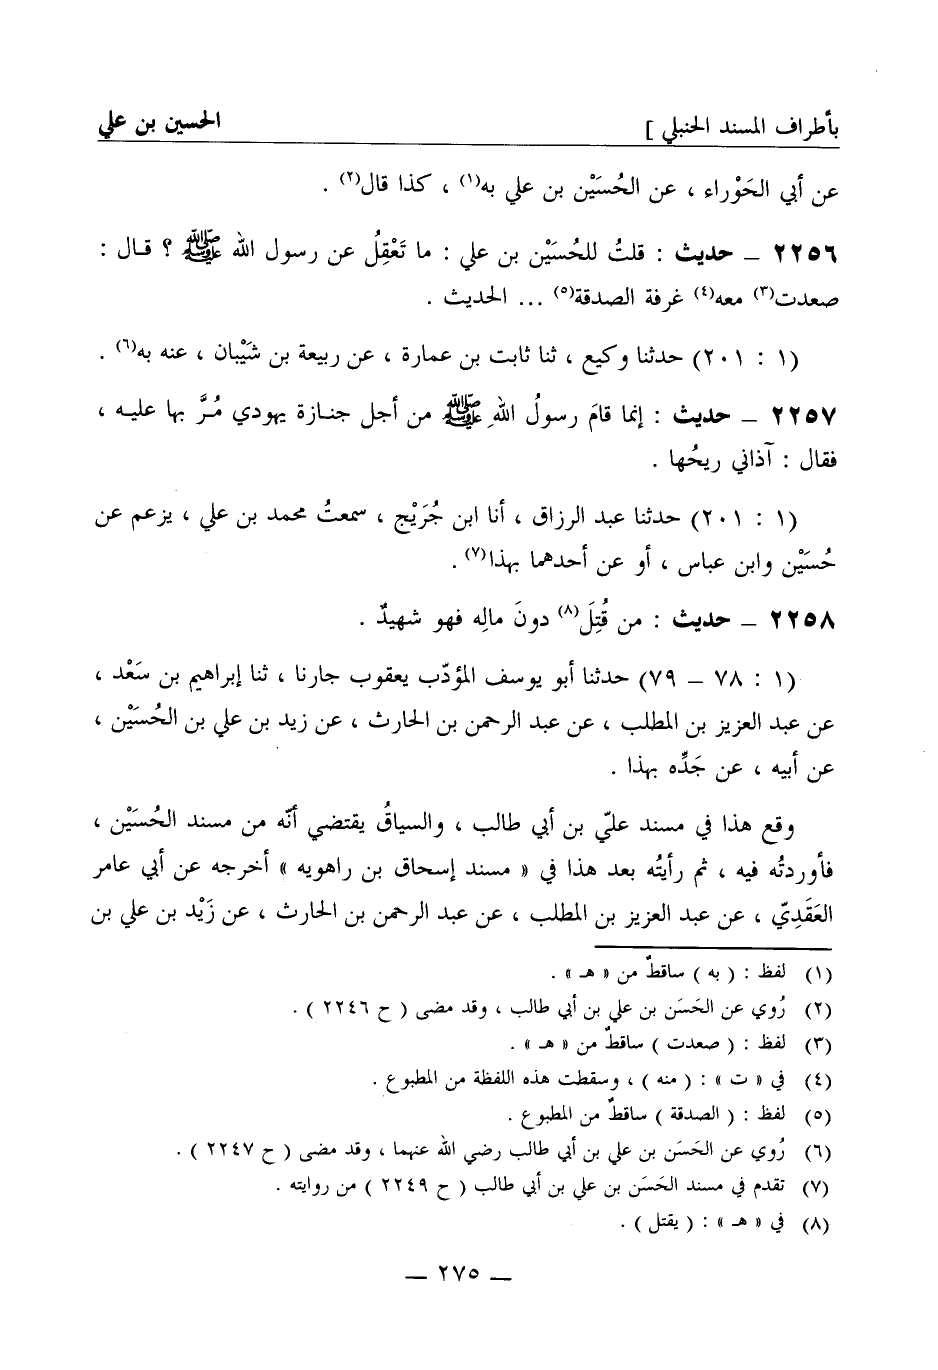 بأطراف المسند الحنبلي ] الحسين بن علي
عن أبي الحَوْراء ، عن الحُسَيْن بن علي به(١) ، كذا قال(٢) .
٢٢٥٦ ـ حديث : قلتُ للحُسَيْن بن علي : ما تَعْقِلُ عن رسول الله ﷺ ؟ قـال :
صعدت(٣) معه(٤) غرفة الصدقة(٥) ... الحديث .
(١ : ٢٠١) حدثنا وكيع ، ثنا ثابت بن عمارة ، عن ربيعة بن شَيْبان ، عنه به(٦) .
٢٢٥٧ ـ حديث : إنما قامَ رسولُ اللهِ ﷺ من أجل جنـازة يهودي مُـرَّ بها عليـه ،
فقال : آذاني ريحُها .
(١ : ٢٠١) حدثنا عبد الرزاق ، أنا ابن جُرَيْج ، سمعتُ محمد بن علي ، يزعم عن
حُسَيْن وابن عباس ، أو عن أحدهما بهذا(٧) .
٢٢٥٨ ـ حديث : من قُتِلَ(٨) دونَ مالِه فهو شهيدٌ .
(١ : ٧٨ ـ ٧٩) حدثنا أبو يوسف المؤدّب يعقوب جارنا ، ثنا إبراهيم بن سَعْد ،
عن عبد العزيز بن المطلب ، عن عبد الرحمن بن الحارث ، عن زيد بن علي بن الحُسَيْن ،
عن أبيه ، عن جَدِّه بهذا .
وقع هذا في مسند عليّ بن أبي طالب ، والسياقُ يقتضي أنّه من مسند الحُسَيْن ،
فأوردتُه فيه ، ثم رأيتُه بعد هذا في « مسند إسحاق بن راهويه » أخرجه عن أبي عامر
العَقَديّ ، عن عبد العزيز بن المطلب ، عن عبد الرحمن بن الحارث ، عن زَيْد بن علي بن
(١) لفظ : ( به ) ساقطٌ من « هـ » .
(٢) رُوي عن الحَسَن بن علي بن أبي طالب ، وقد مضى ( ح ٢٢٤٦ ) .
(٣) لفظ : ( صعدت ) ساقطٌ من « هـ » .
(٤) في « ت » : ( منه ) ، وسقطت هذه اللفظة من المطبوع .
(٥) لفظ : ( الصدقة ) ساقطٌ من المطبوع .
(٦) رُوي عن الحَسَن بن علي بن أبي طالب رضي الله عنهما ، وقد مضى ( ح ٢٢٤٧ ) .
(٧) تقدم في مسند الحَسَن بن علي بن أبي طالب ( ح ٢٢٤٩ ) من روايته .
(٨) في « هـ » : ( يقتل ) .
ـ ٢٧٥ ـ